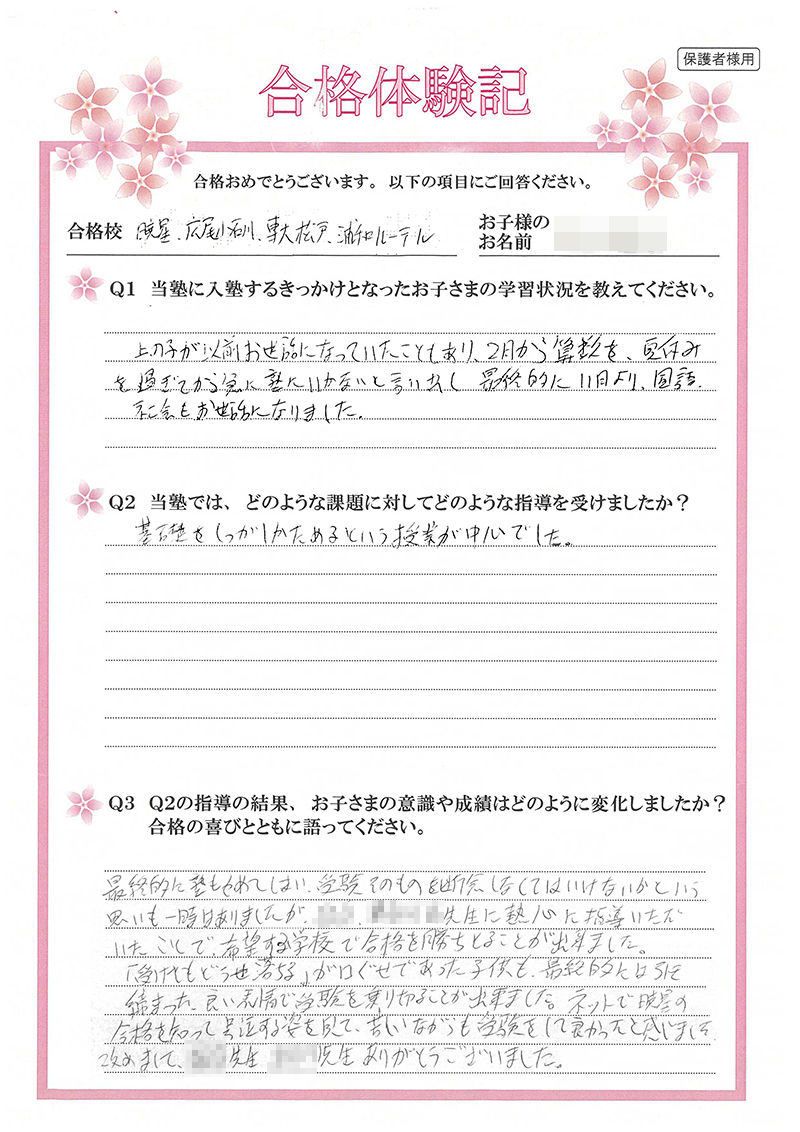 保護者様用
合格体験記
合格おめでとうございます。以下の項目にご回答ください。
合格校 暁星、広尾小石川、専大松戸、浦和ルーテル
お子様の
お名前
Q1 当塾に入塾するきっかけとなったお子さまの学習状況を教えてください。
上の子が以前お世話になっていたこともあり、2月から算数を、夏休み
を過ぎてから急に塾にいかないと言い出し 最終的に11月より、国語、
社会もお世話になりました。
Q2 当塾では、どのような課題に対してどのような指導を受けましたか？
基礎をしっかりかためるという授業が中心でした。
Q3 Q2の指導の結果、お子さまの意識や成績はどのように変化しましたか？
合格の喜びとともに語ってください。
最終的に塾もやめてしまい、受験そのものを断念しなくてはいけないかという
思いも一時ありましたが、先生に熱心に指導いただ
いたことで、希望する学校で合格を勝ちとることが出来ました。
「受けてもどうせ落ちる」が口ぐせであった子供も、最終的には
締まった、良い表情で受験を乗り切ることが出来ました。ネットで暁星の
合格を知って号泣する姿を見て、苦しいながらも受験をして良かったと感じます。
改めまして、先生 先生ありがとうございました。